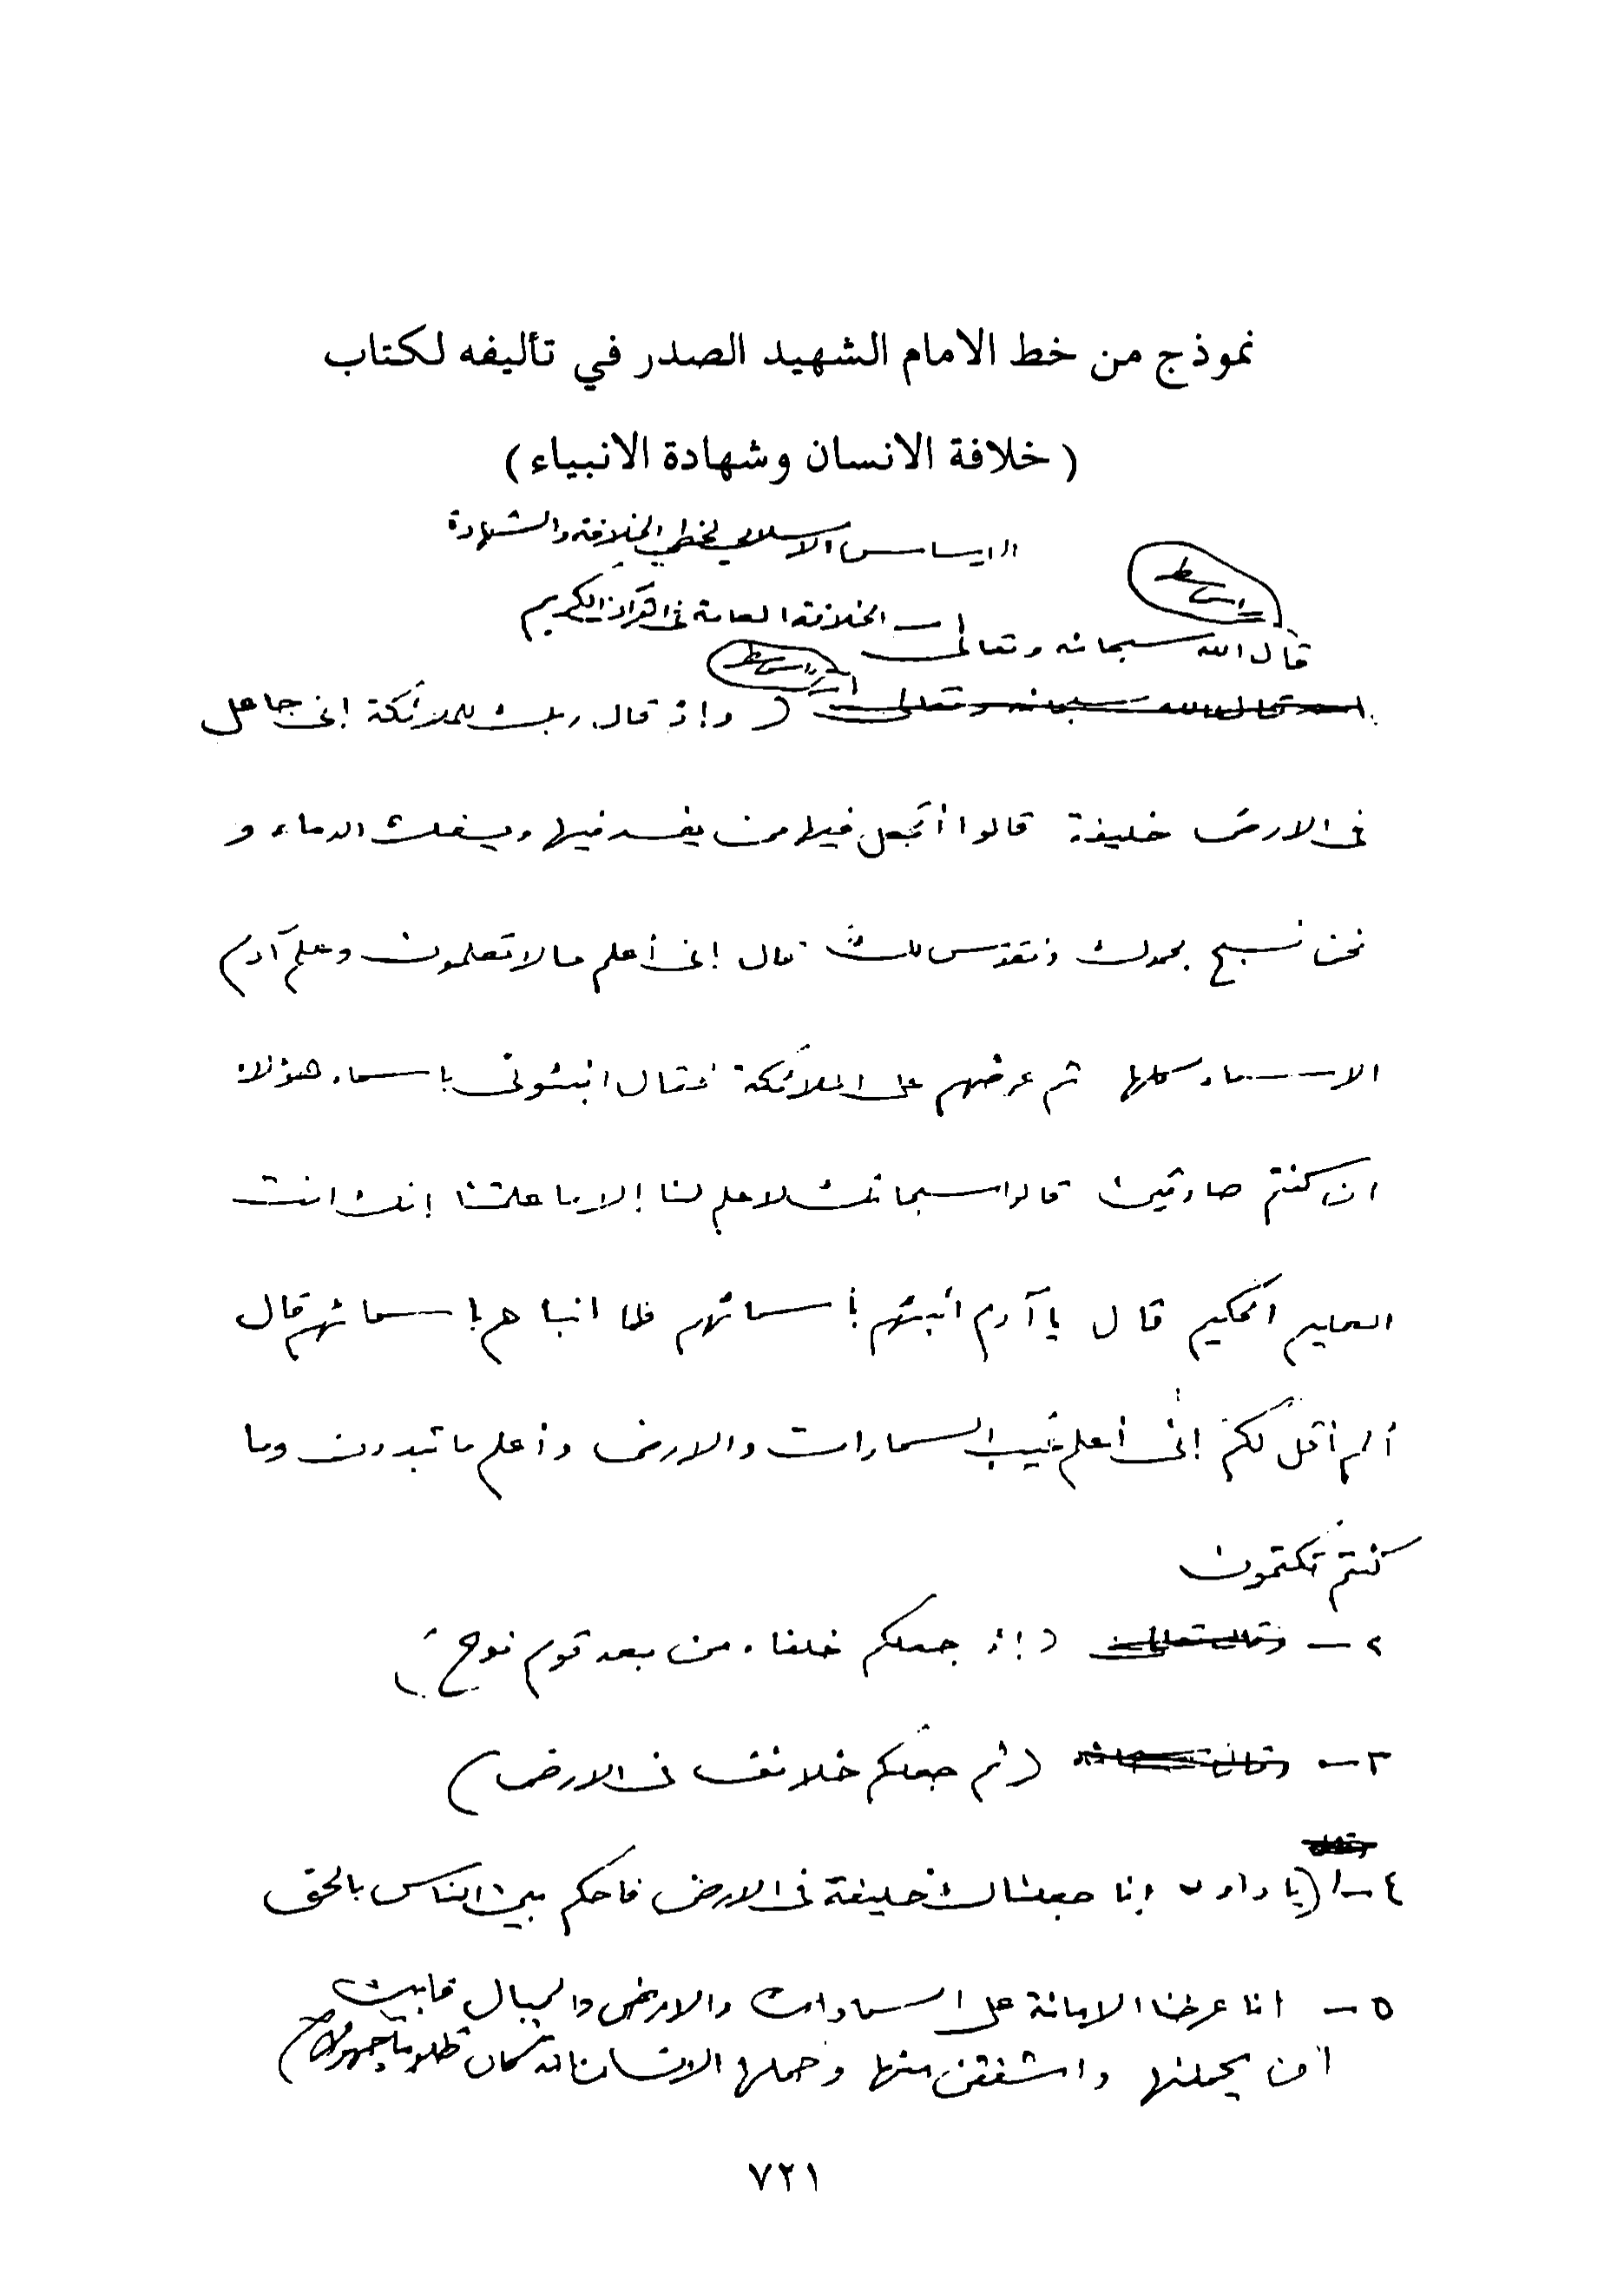 نموذج من خط الامام الشهيد الصدر في تأليفه لكتاب
(خلافة الانسان وشهادة الانبياء)
الاساس الاسلامي لخطي الخلافة والشهادة
اسطر
١ـ الخلافة العامة في القرآن الكريم
قال الله سبحانه وتعالى
١ـ قال الله سبحانه وتعالى (واذ قال ربك للملائكة إني جاعل
في الارض خليفة قالوا أتجعل فيها من يفسد فيها ويسفك الدماء و
نحن نسبح بحمدك ونقدس لك قال إني أعلم ما لا تعلمون وعلم آدم
الاسماء كلها ثم عرضهم على الملائكة فقال انبئوني باسماء هؤلاء
ان كنتم صادقين قالوا سبحانك لا علم لنا إلا ما علمتنا إنك انت
العليم الحكيم قال يا آدم أنبئهم بأسمائهم فلما انبأهم باسمائهم قال
ألم أقل لكم إني أعلم غيب السماوات والارض وأعلم ما تبدون وما
كنتم تكتمون
٢ـ وقال تعالى (إذ جعلكم خلفاء من بعد قوم نوح)
٣ـ وقال سبحانه (ثم جعلكم خلائف في الارض)
وقال
٤ـ (يا داود إنا جعلناك خليفة في الارض فاحكم بين الناس بالحق
٥ـ انا عرضنا الامانة على السماوات والارض والجبال فابين
أن يحملنها واشفقن منها وحملها الانسان انه كان ظلوما جهولا)
٧٢١